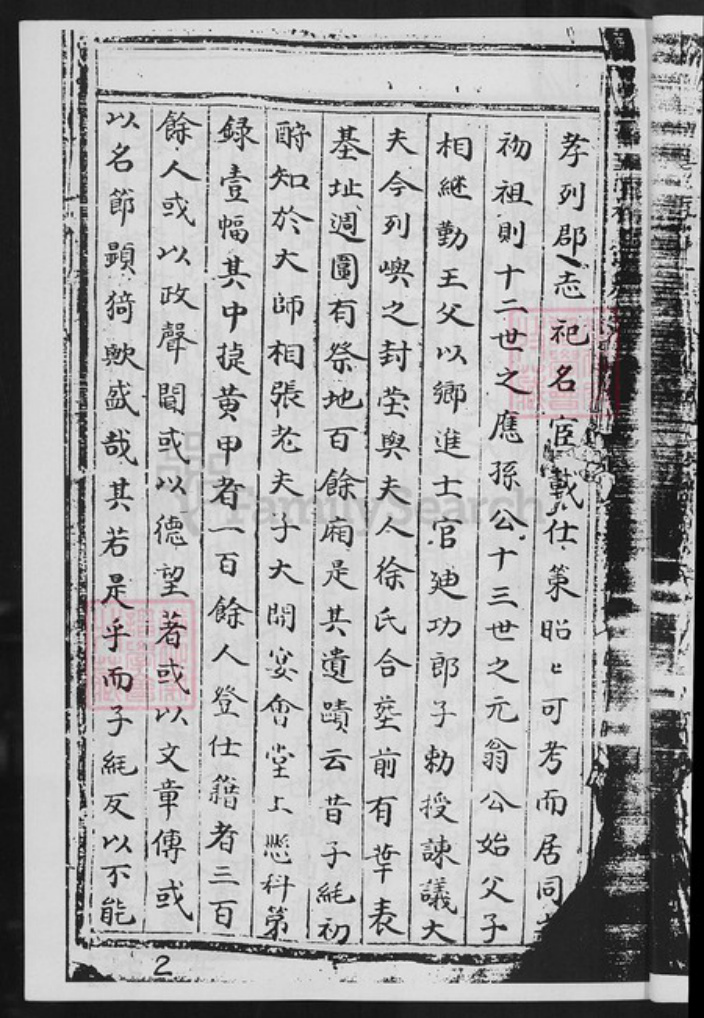 孝列郡志祀名宦載仕第昭〻可考而居同
初祖則十二世之應孫公十三世之元翁公始父子
相継勤王父以鄉進士官廸功郎子勅授諫議大
夫今列嶼之封塋與夫人徐氏合塟前有華表
基址週圍有祭地百餘廂是其遺蹟云昔子純初
酧知於大師相張老夫子大開宴會堂上懸科第
録壹幅其中掟黄甲者一百餘人登仕籍者三百
餘人或以政聲聞或以德望著或以文章傳或
以名節顕猗歟盛哉其若是乎而子純反以不能
2
FamilySearch